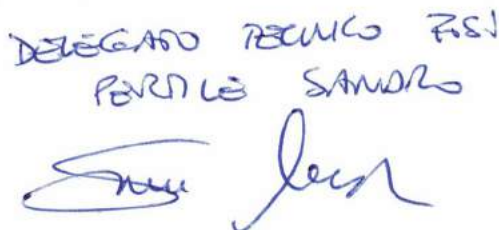 DELEGATO TECNICO FISI
PERTILE SANDRO